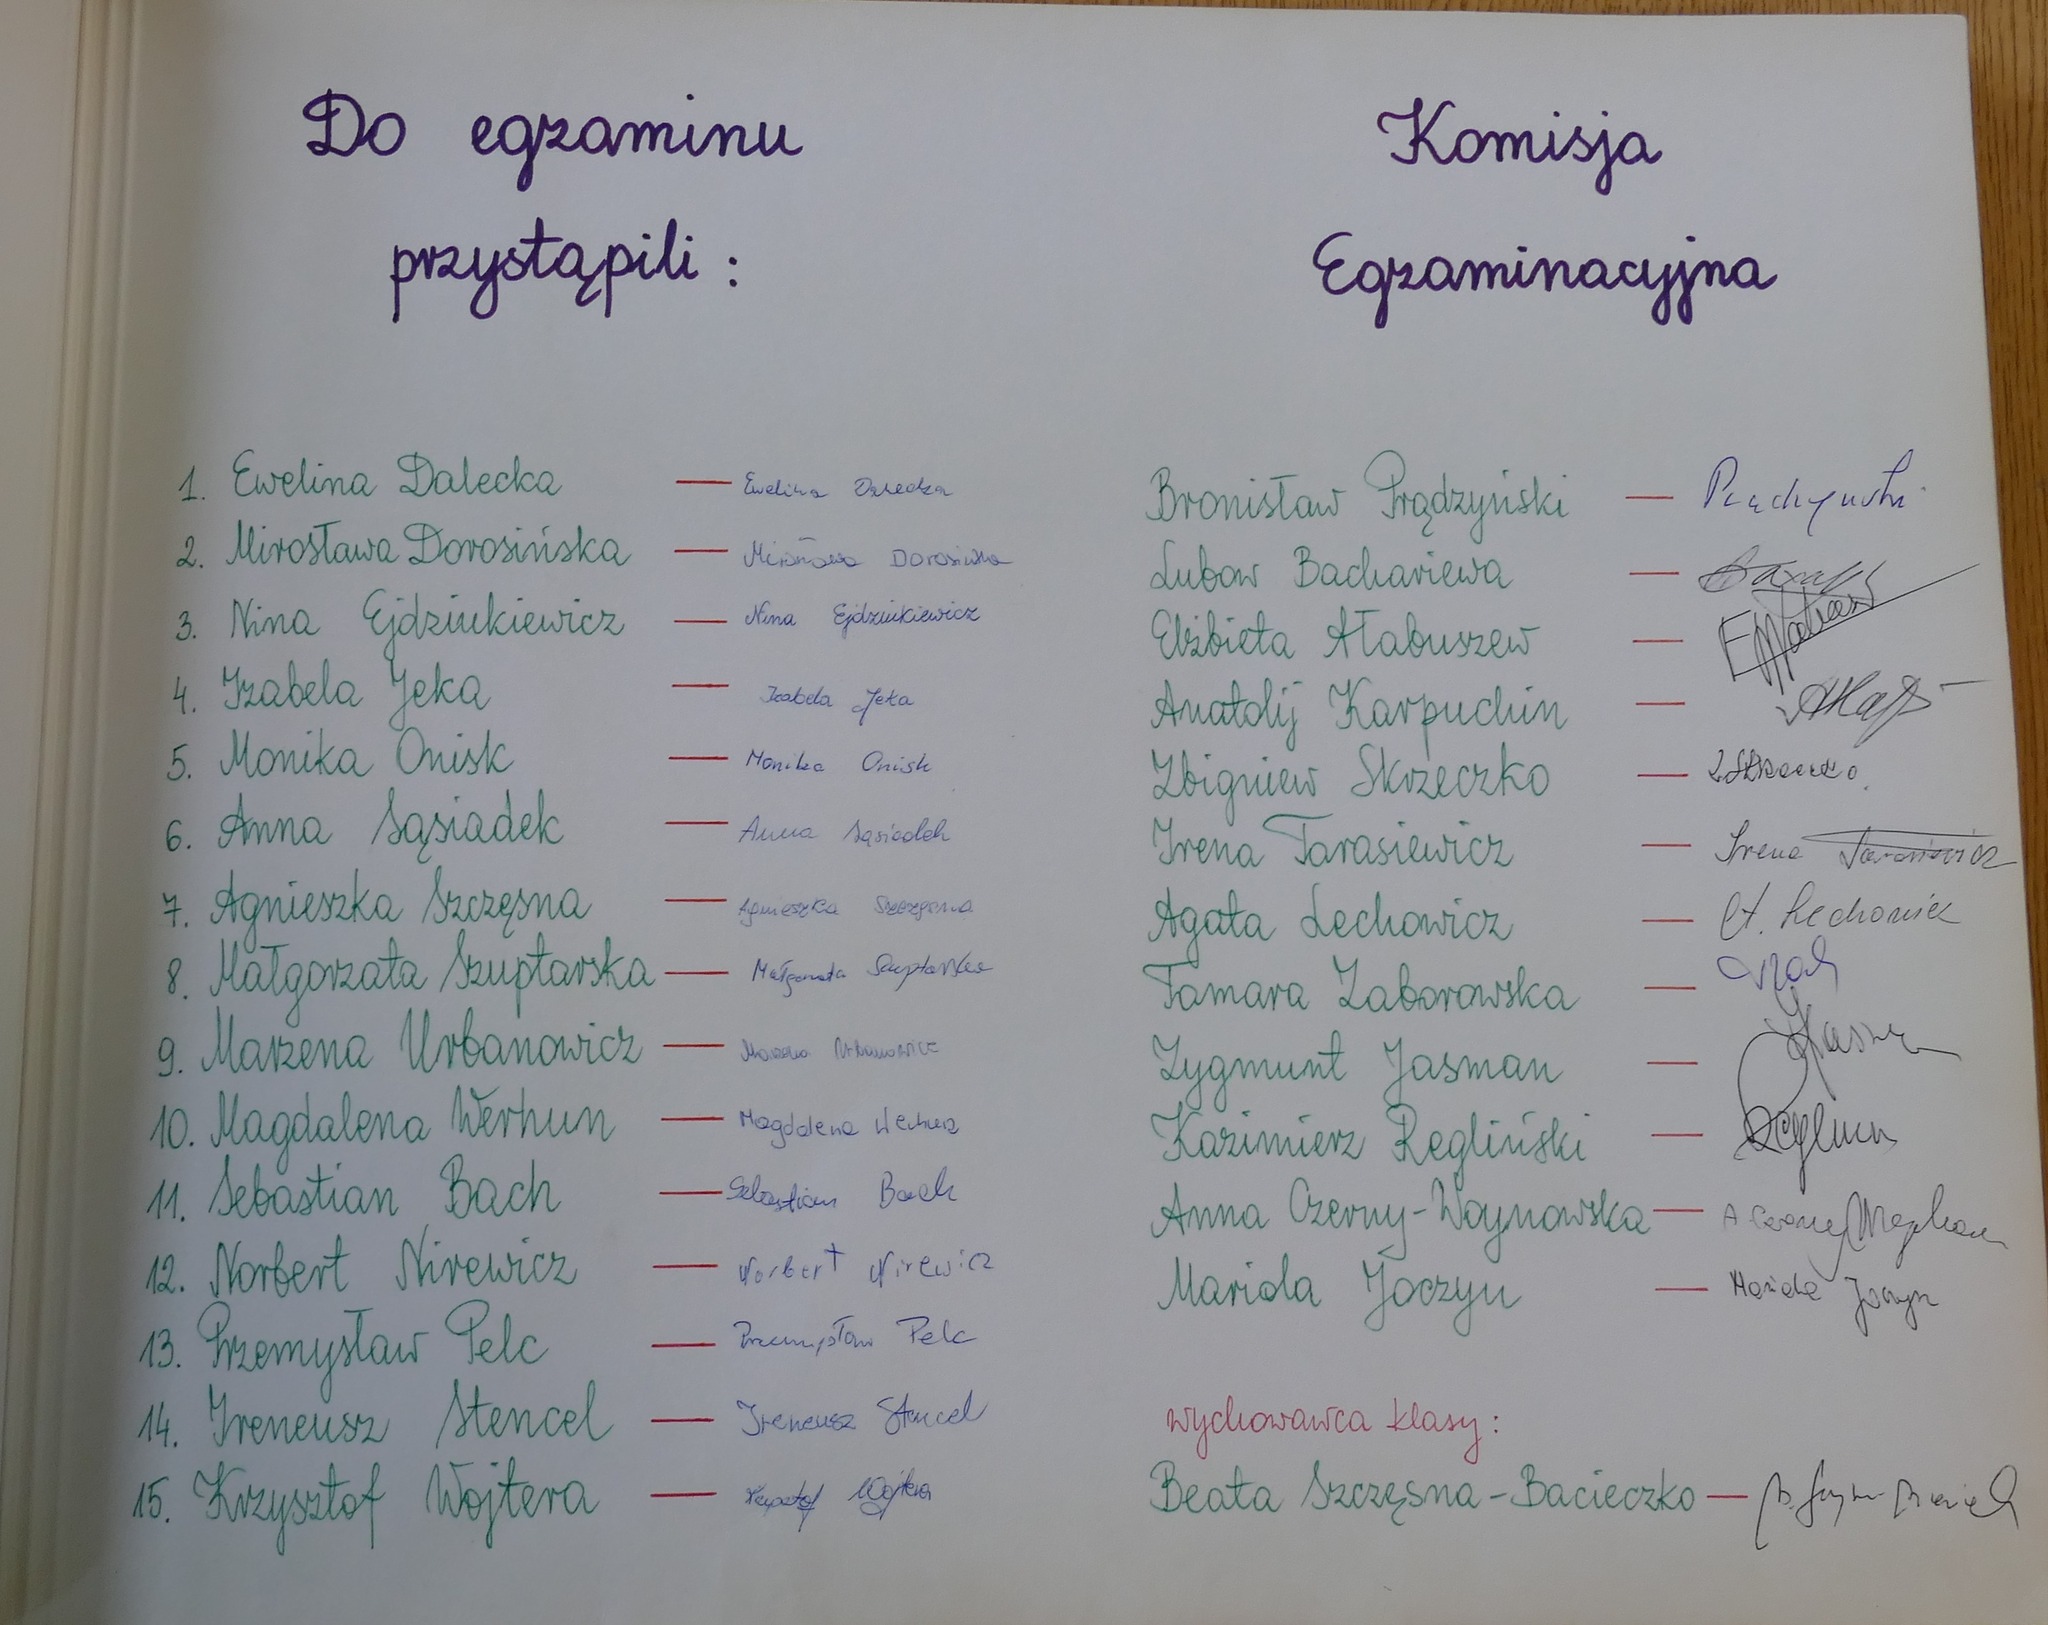 Do egzaminu
przystąpili :
1. Ewelina Dalecka — Ewelina Dalecka
2. Mirosława Dorosińska — Mirosława Dorosińska
3. Nina Ejdziukiewicz — Nina Ejdziukiewicz
4. Izabela Jeka — Izabela Jeka
5. Monika Onisk — Monika Onisk
6. Anna Sąsiadek — Anna Sąsiadek
7. Agnieszka Szczęsna — Agnieszka Szczęsna
8. Małgorzata Szuptarska — Małgorzata Szuptarska
9. Marzena Urbanowicz — Marzena Urbanowicz
10. Magdalena Werhun — Magdalena Werhun
11. Sebastian Bach — Sebastian Bach
12. Norbert Nirewicz — Norbert Nirewicz
13. Przemysław Pelc — Przemysław Pelc
14. Ireneusz Stencel — Ireneusz Stencel
15. Krzysztof Wojtera — Krzysztof Wojtera
Komisja
Egzaminacyjna
Bronisław Prądzyński —
Lubow Bachariewa —
Elżbieta Ałabuszew —
Anatolij Karpuchin —
Zbigniew Skrzeczko —
Irena Tarasiewicz — Irena Tarasiewicz
Agata Lechowicz — A. Lechowicz
Tamara Zaborowska —
Zygmunt Jasman —
Kazimierz Regliński —
Anna Czerny-Woynowska —
Mariola Joczyn — Mariola Joczyn
Wychowawca klasy :
Beata Szczęsna-Bacieczko —